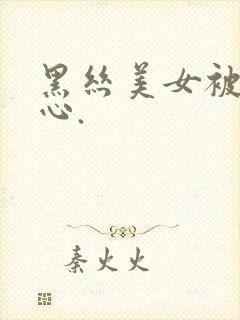 黑丝美女被
心.
秦火火